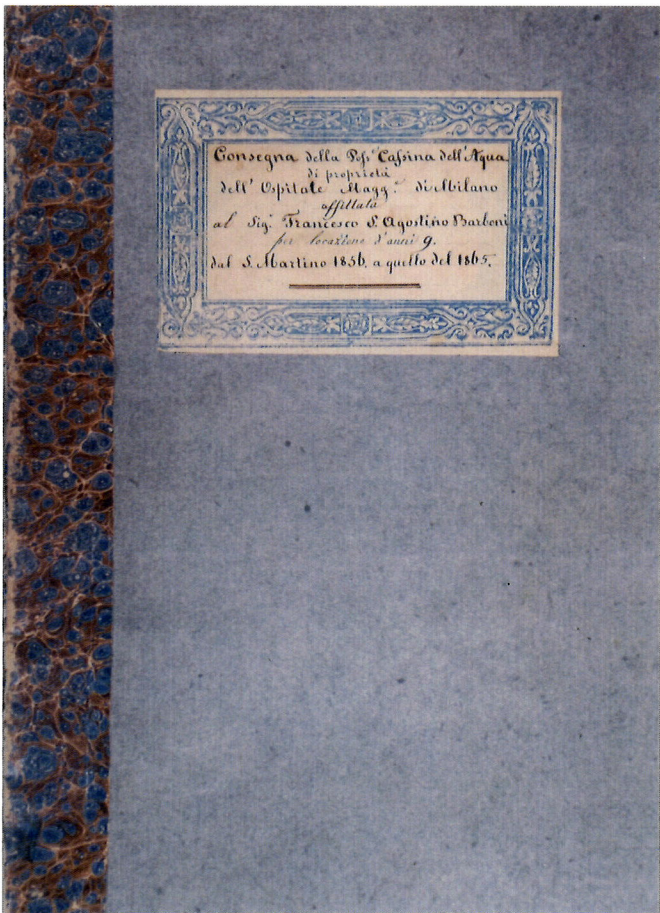 Consegna della Poss.e Cassina dell'Aqua
di proprietà
dell' Ospitale Magg.e di Milano
affittata
al Sig.r Francesco S. Agostino Barboni
per locazione d'anni 9.
dal S. Martino 1856. a quello del 1865.